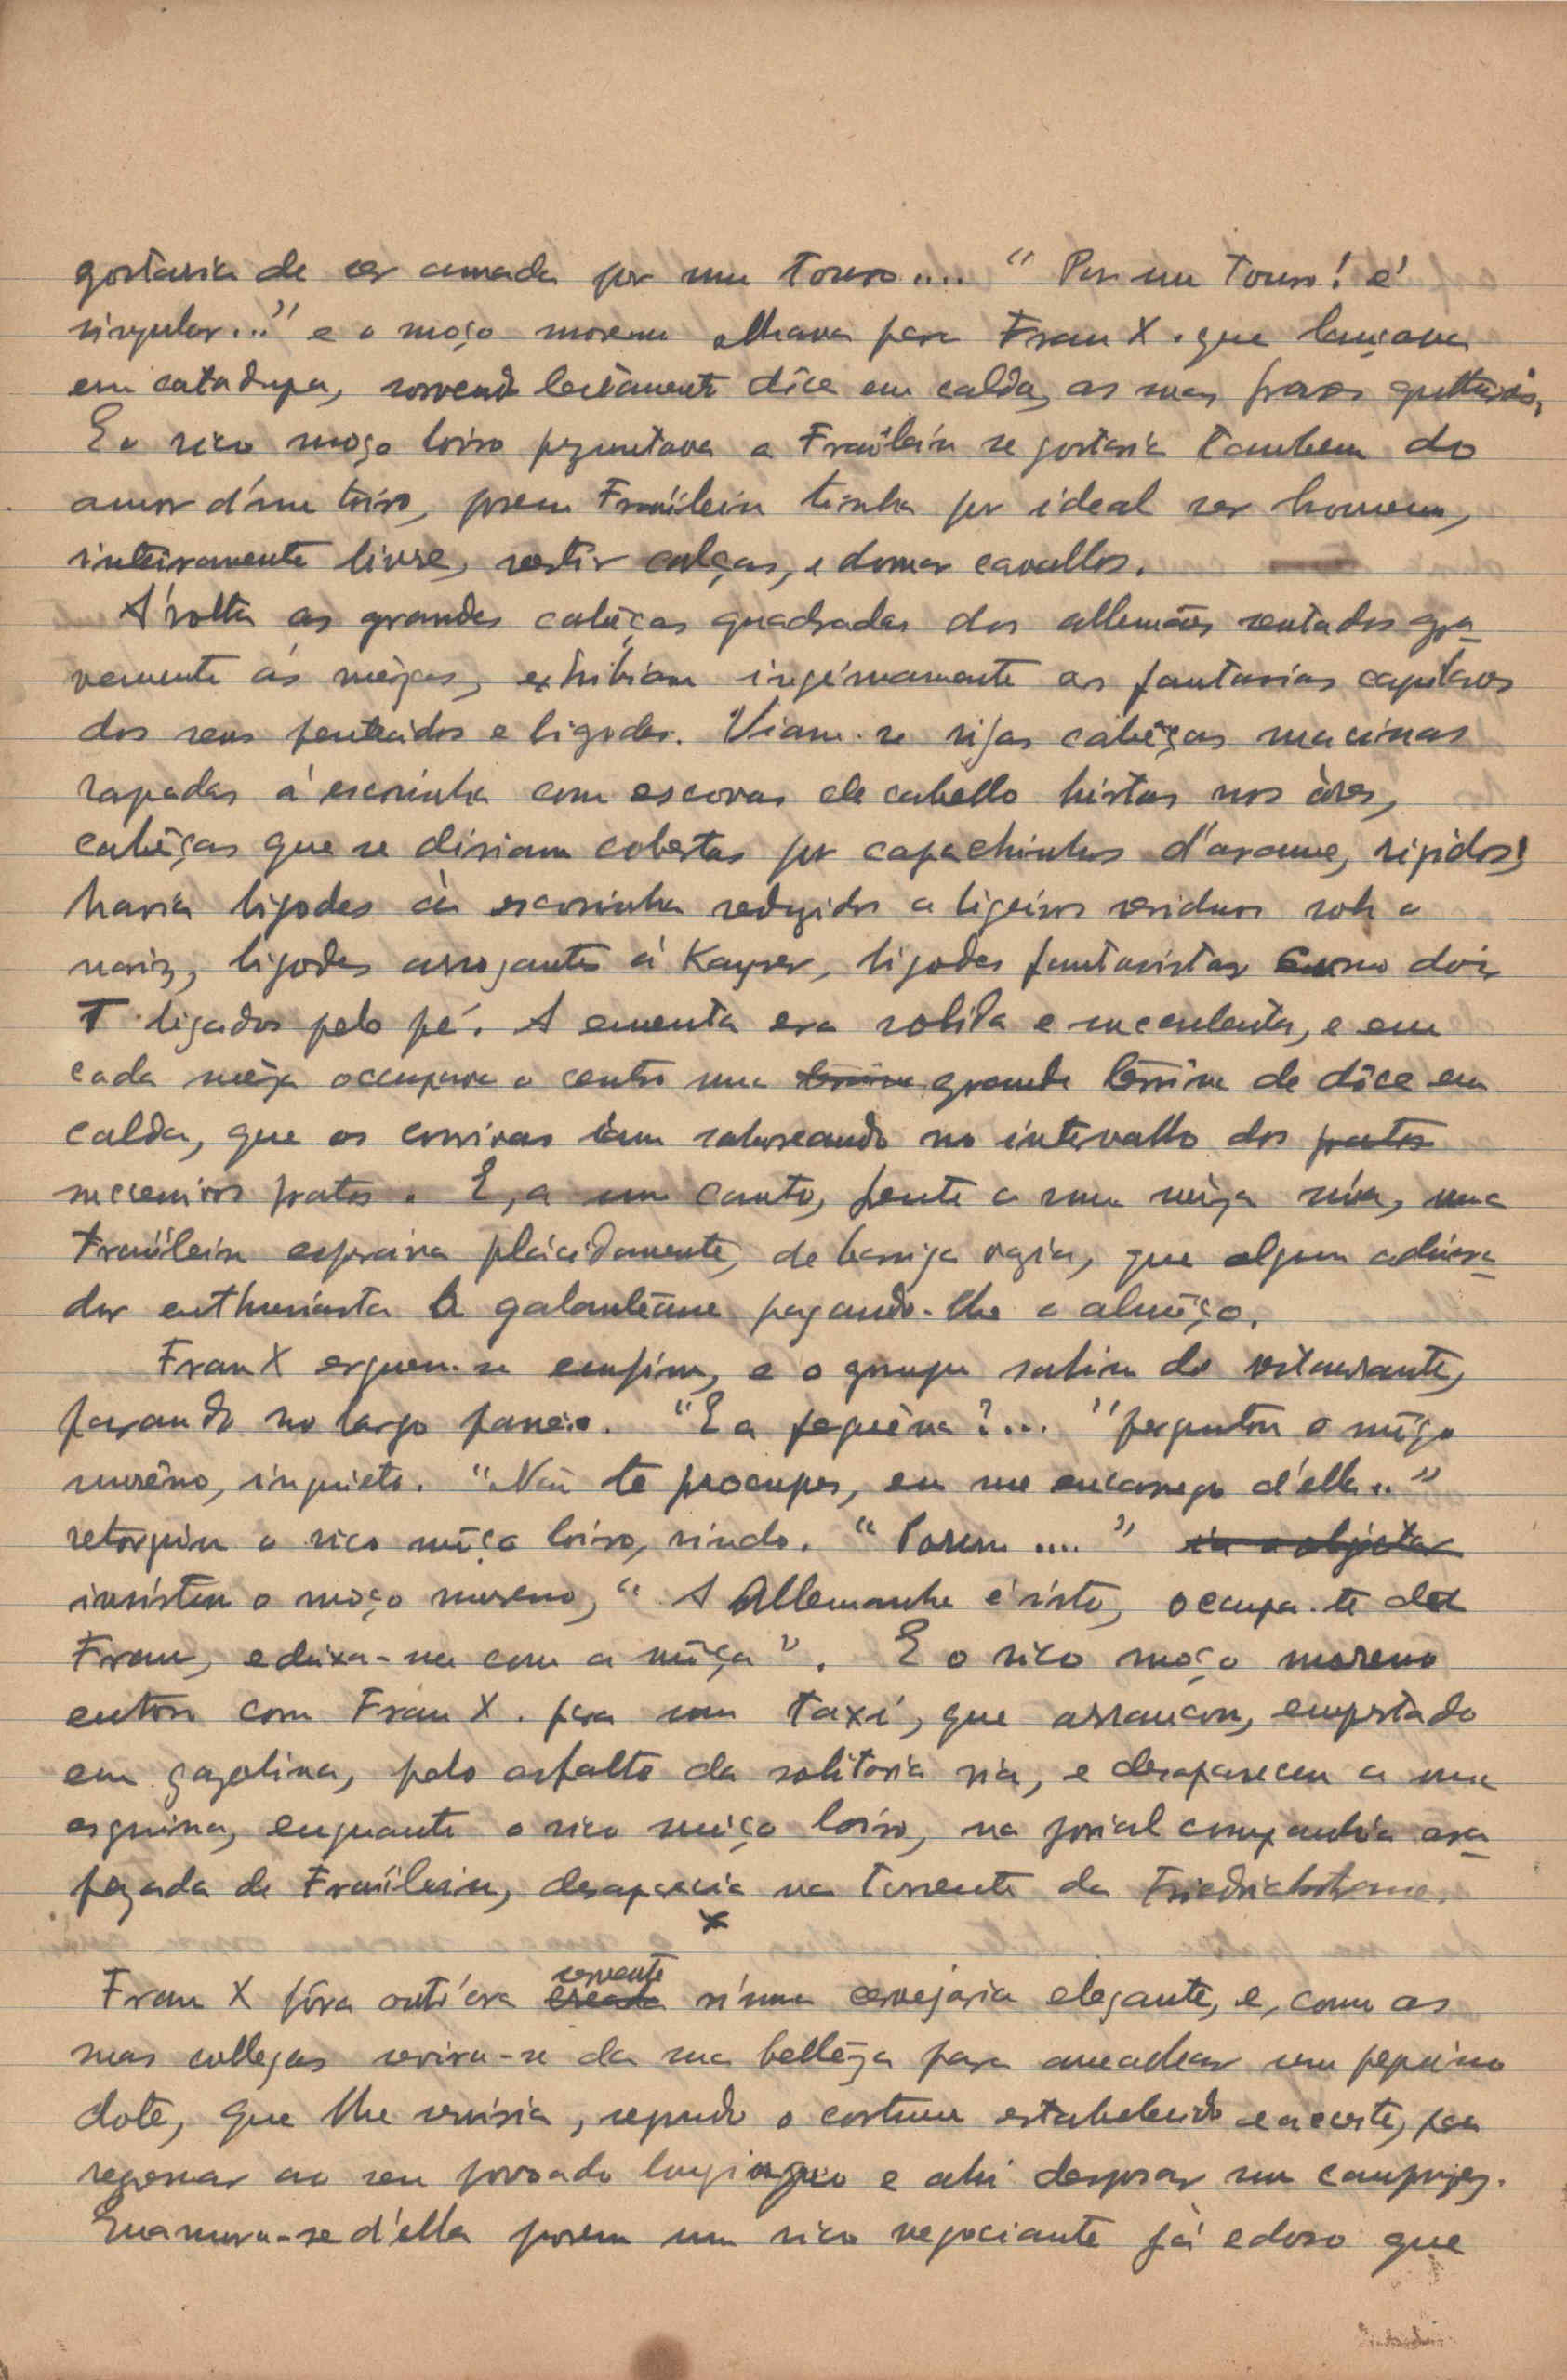 gostaria de ser amada por um touro.... " Por um touro! é
singular..." e o moço moreno olhava para Frau X. que lançava
em catadupa, sorvendo lentamente dôce em calda, as suas frases gutturais,
E o rico moço loiro perguntava a Fraülein se gostaria tambem do
amor d'um toiro, porem Fraülein tinha por ideal ser homem,
inteiramente livre, vestir calças, e domar cavallos.
A' volta as grandes cabêças quadradas dos allemães sentados gra-
vemente ás mêzas, exhibiam ingénuamente as fantasias capilares
dos seus penteados e bigodes. Viam-se rijas cabêças macissas
rapadas á escovinha com escovas de cabello hirtas nos àres,
cabêças que se diriam cobertas por capachinhos d'arame, rigidos;
havia bigodes à escovinha reduzidos a ligeiros residuos sob o
nariz, bigodes arrogantes á Kayser, bigodes fantasistas como dois
T ligados pelo pé. A ementa era solida e suculenta, e em
cada mêza occupava o centro uma terrina grande terrina de dôce em
calda, que os convivas iam saboreando no intervallo dos pratos
sucessivos pratos. E, a um canto, frente a uma mêza núa, uma
Fraülein esperava plácidamente, de barriga vazia, que algum admira-
dor enthusiasta a galanteasse pagando-lhe o almôço.
Frau X ergueu-se emfim, e o grupo sahiu do restaurante,
parando no largo passeio. "E a pequêna?... " perguntou o môço
morêno, inquieto. "Não te preocupes, eu me encarrego d'ella.."
retorquiu o rico môço loiro, rindo. "Porem .... " ia a objectar
insistiu o moço moreno, " A Allemanha é isto, occupa-te da
Frau, e deixa-me com a môça". E o rico moço moreno
entrou com Frau X. para um taxi, que arrancou, empestado
em gazolina, pelo asfalto da solitaria via, e desapareceu a uma
esquina, enquanto o rico môço loiro, na jovial companhia
de Fraülein, desaparecia na torrente da Friedrichstrasse.
x
servente
Frau X fôra outr'ora creada n'uma cervejaria elegante, e, como as
suas collegas servira-se da sua bellêza para amealhar um pequêno
dote, que lhe serviria, segundo o costume estabelecido e acceite, para
regressar ao seu povoado longinquo e ahi desposar um camponez.
Enamorou-se d'ella porem um rico negociante já edoso que